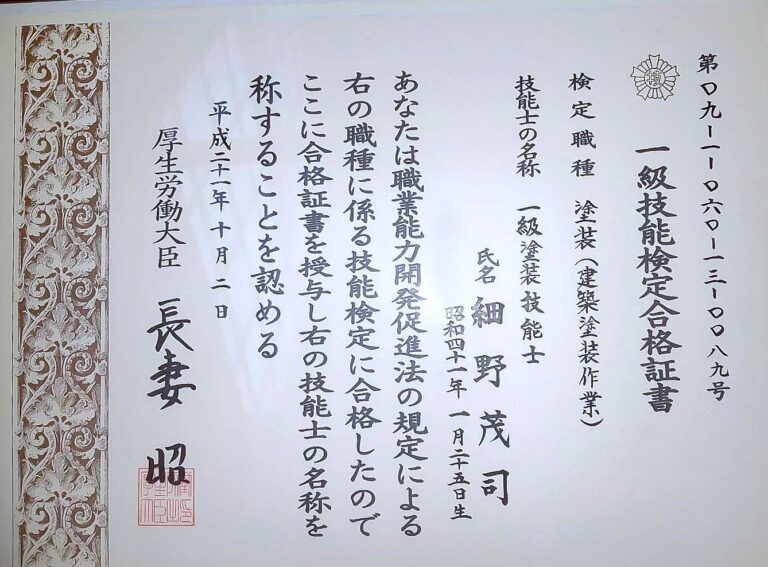 第〇九-一-〇六〇-一三-〇〇八九号
一級技能検定合格証書
検定職種 塗装(建築塗装作業)
技能士の名称 一級塗装技能士
氏名 細野茂司
昭和四十一年 一月二十五日生
あなたは職業能力開発促進法の規定による
右の職種に係る技能検定に合格したので
ここに合格証書を授与し右の技能士の名称を
称することを認める
平成二十一年十月二日
厚生労働大臣 長妻昭